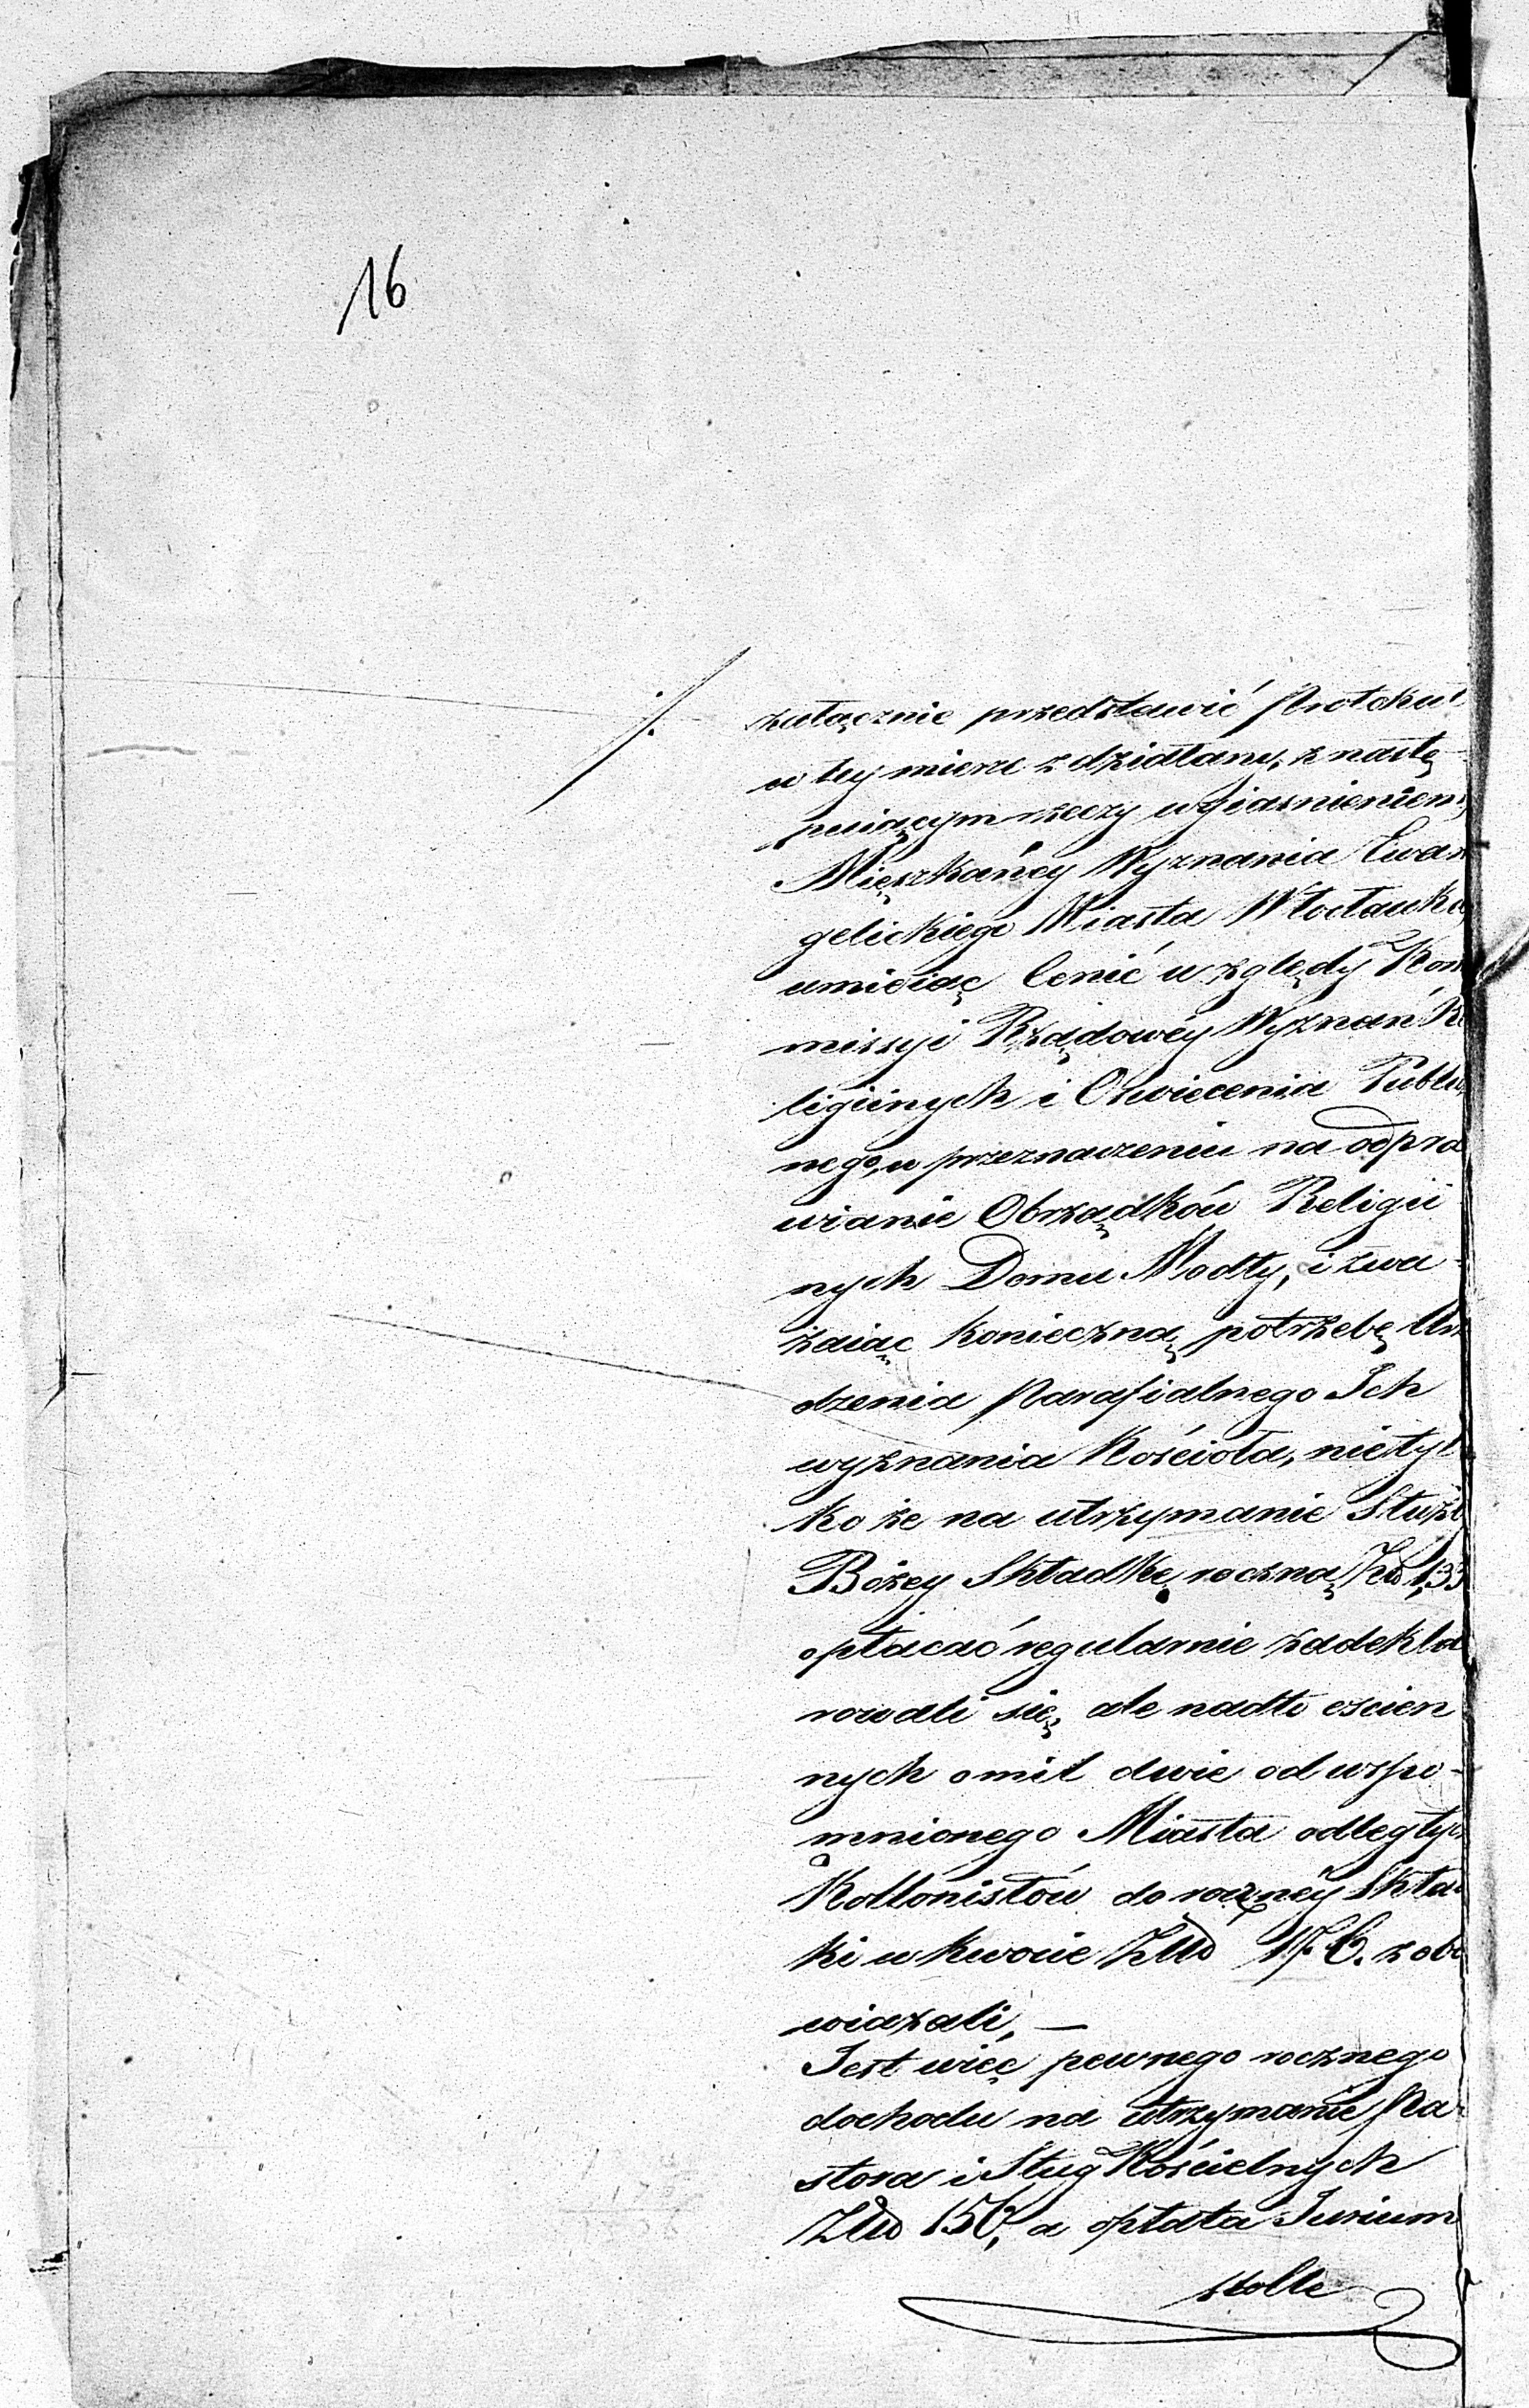 16
załącznie przedstawić Protokuł
w tey mierze zdziałany, z nastę-
puiącym rzeczy wyiasnieniem,
Mięszkańcy Wyznania Ewan
gelickiego Miasta Włocławka,
umieiąc Cenić względy Kom
missyi Rządowéy Wyznań Re
ligiinych i Oświecenia Public
nego, w przeznaczeniu na odpra
wianie Obrządków Religii
nych Domu Modły, i zwa-
żaiąc konieczną potrzebę Urz
dzenia Parafialnego Ich
wyznania Kościoła, nietyl
ko że na utrzymanie Służb
Bożey Składkę roczną Złł 133
opłacać regularnie zadekla
rowali się, ale nadto oscien
nych o mil dwie od wspo-
mnionego Miasta odległych
Kollonistów do roczney Skła
ki w kwocie Złł 176. zobo
wiązali, —
Jest więc pewnego rocznego
dochodu na utrzymanie Pa-
stora i Sług Kościelnych
Złł 150, a opłata Jurium
stolle